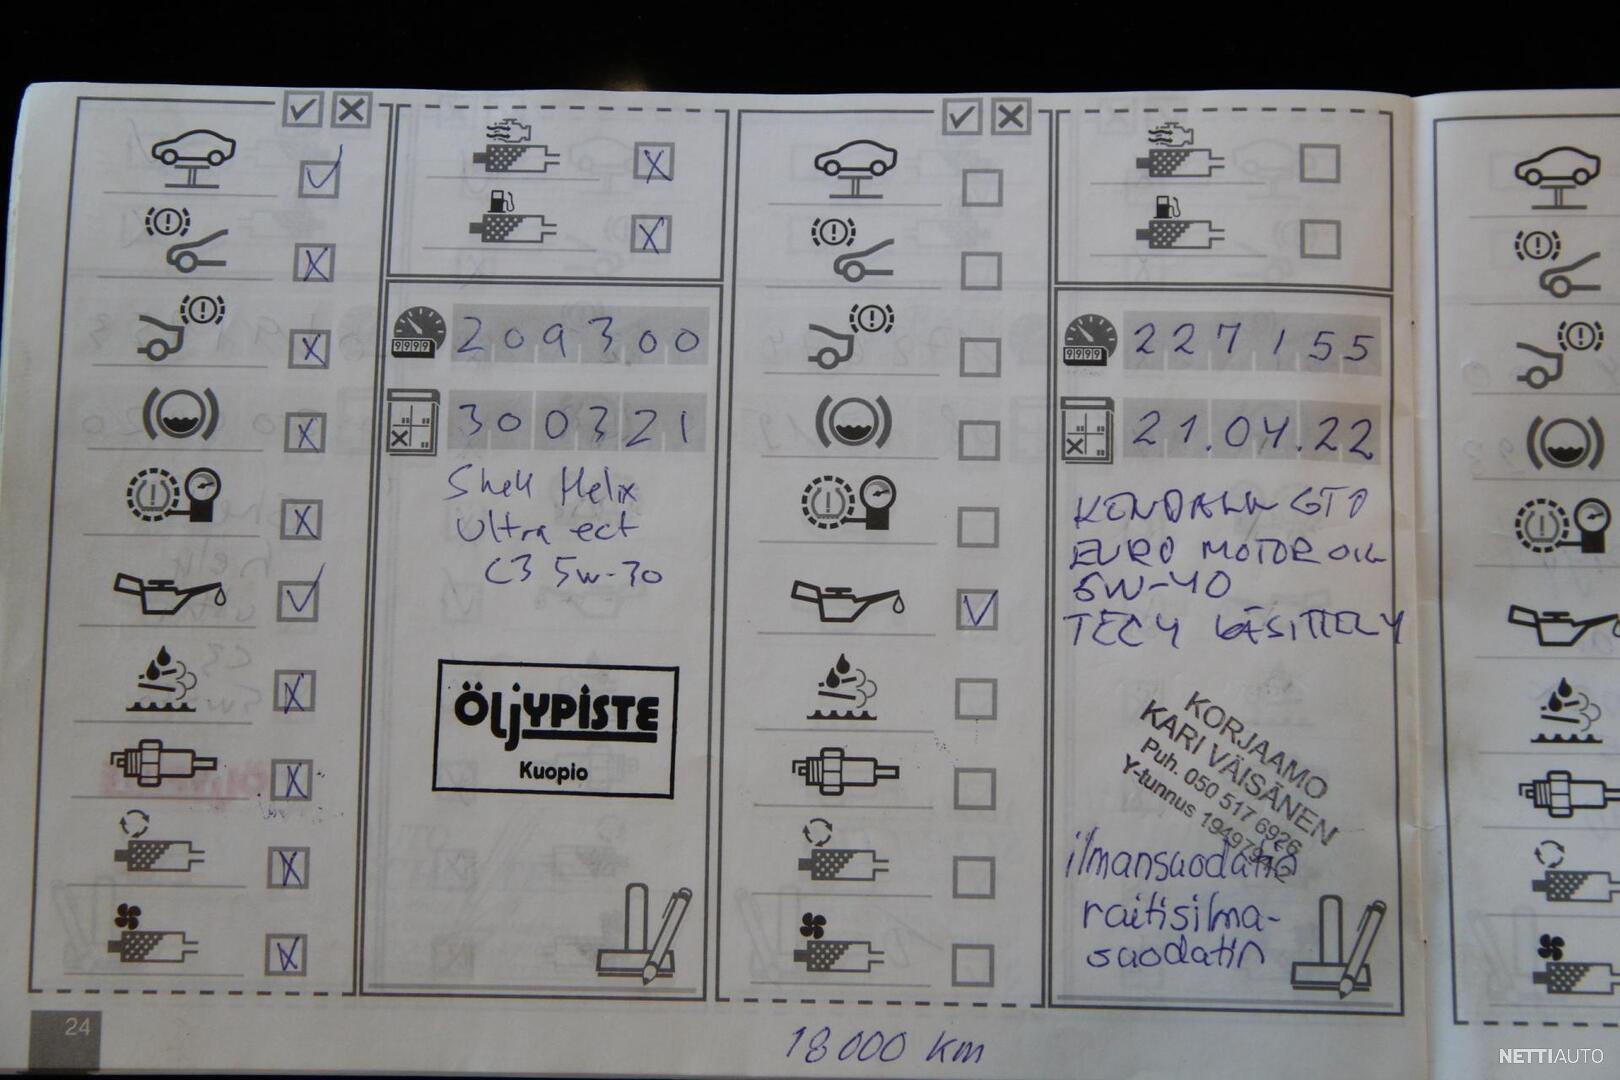 209300
300321
Shell Helix
Ultra ect
C3 5w-30
ÖLJYPISTE
Kuopio
227155
21.04.22
KENDALL GT1
EURO MOTOR OIL
5W-40
TEC4 KÄSITTELY
KORJAAMO
KARI VÄISÄNEN
Puh. 050 517 6926
Y-tunnus
ilmansuodatin
raitisilma-
suodatin
24
18000 km
NETTIAUTO